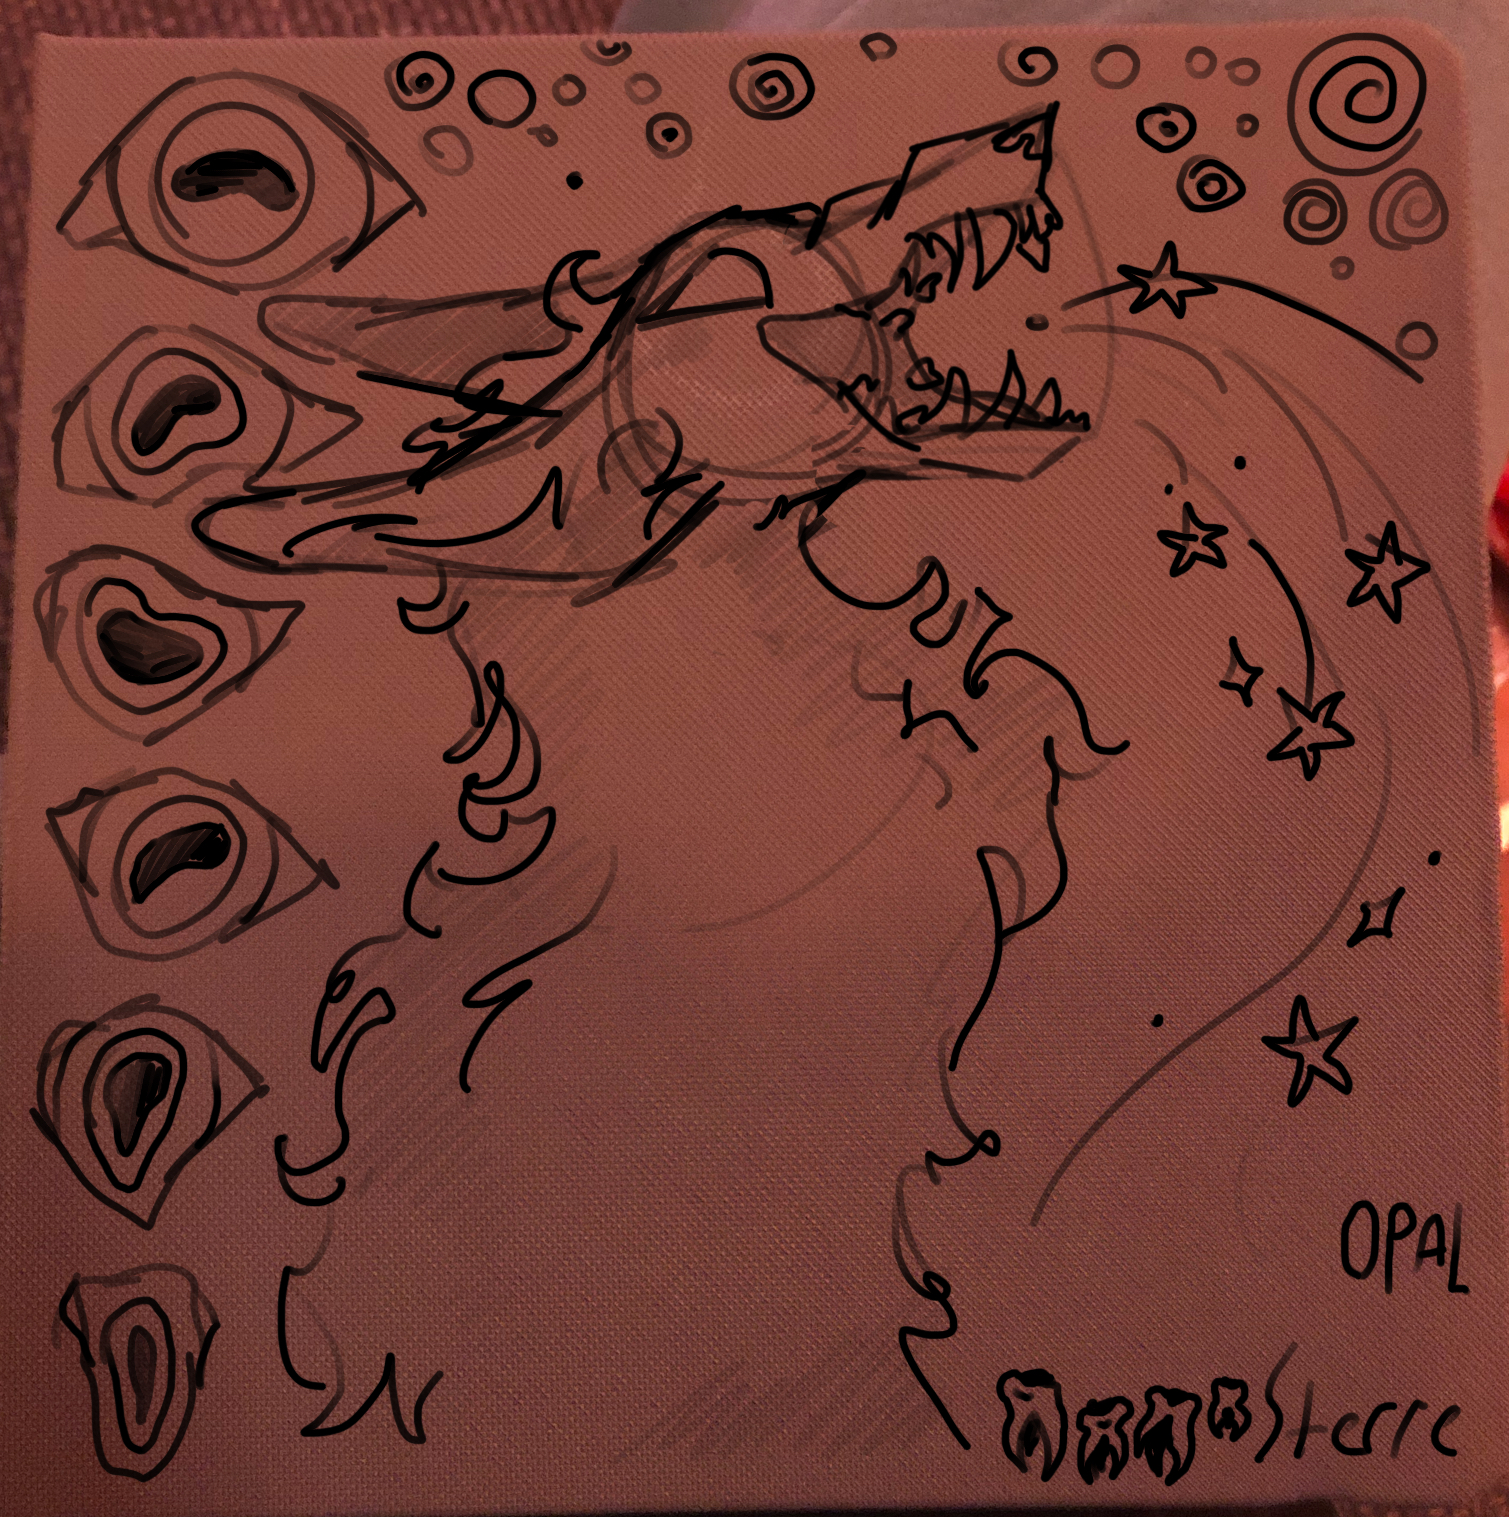 OPAL
Sterre